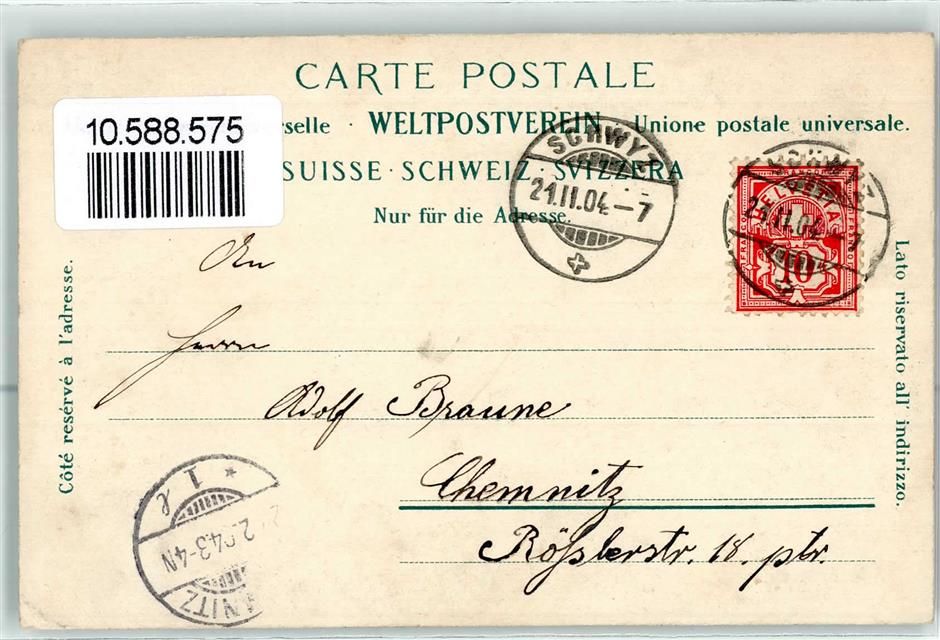 CARTE POSTALE
10.588.575
rselle · WELTPOSTVEREIN · Unione postale universale.
SUISSE · SCHWEIZ · SVIZZERA
Nur für die Adresse.
SCHWYZ
21.II.04.–7
SCHWYZ
21.II.04.–7
HELVETIA
10
An
Herrn
Adolf Braune
Chemnitz
Rößlerstr. 18. ptr.
Côté resérvé à l'adresse.
Lato riservato all' indirizzo.
* 1 l
2.04.3-4N
NITZ